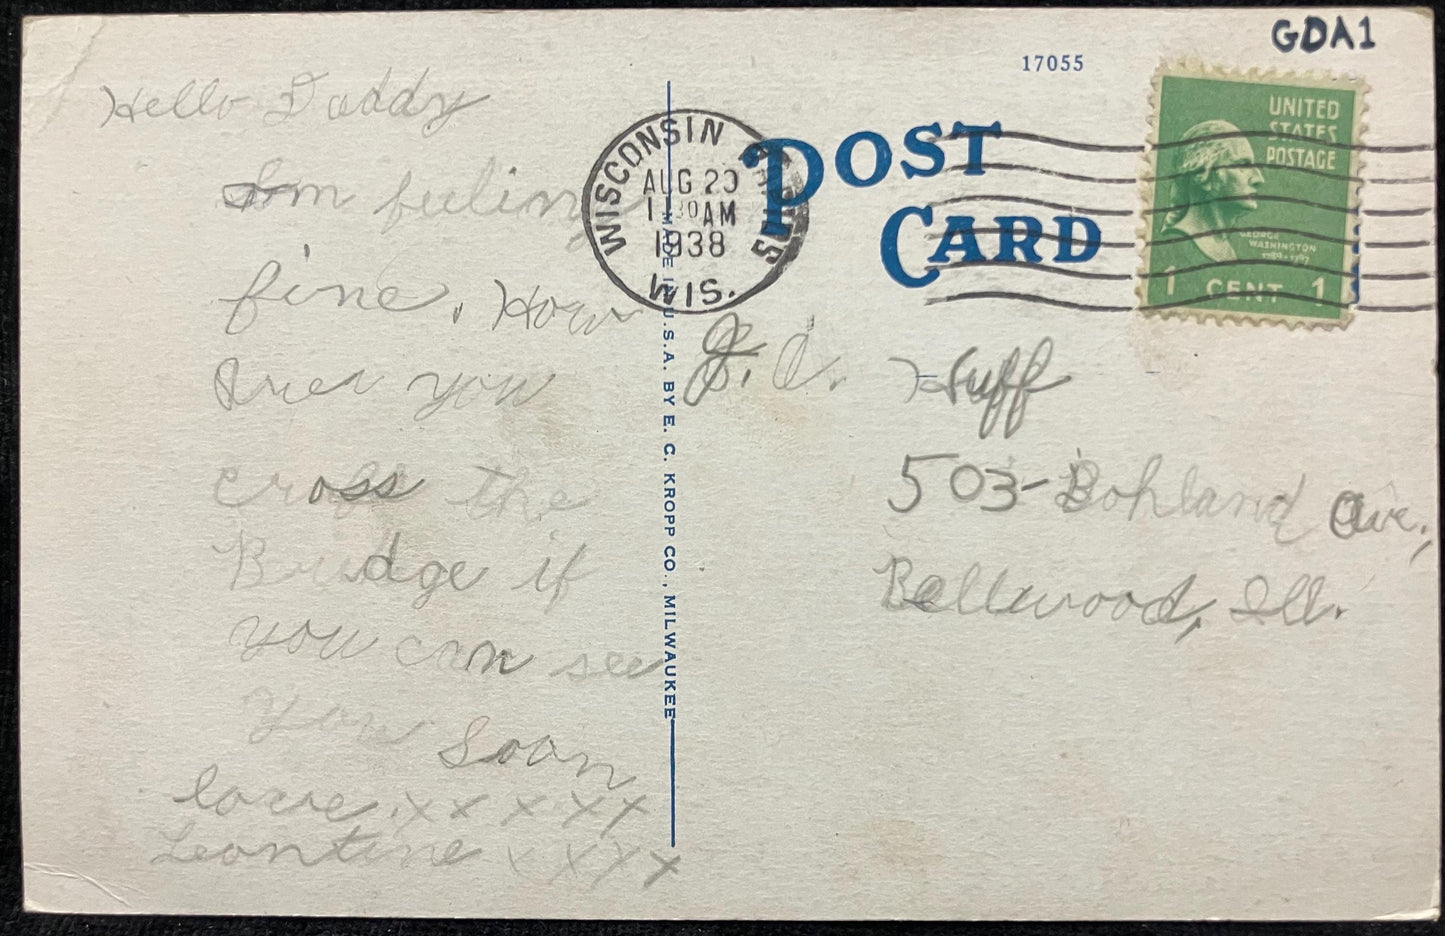 GDA1
17055
POST
CARD
UNITED
STATES
POSTAGE
GEORGE
WASHINGTON
1789-1797
1 CENT 1
WISCONSIN RAPIDS
AUG 20
AM
1938
WIS.
MADE IN U.S.A. BY E. C. KROPP CO., MILWAUKEE
Hello Daddy
Im feeling
fine. How
are you
cross the
Bridge if
you can see
you Soon
love. x x x x x
Leontine x x x x
J. Huff
503-Bohland Ave,
Bellwood, Ill.